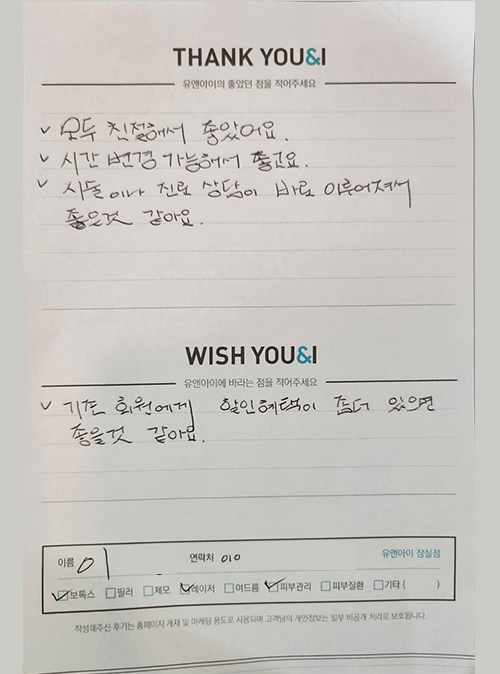 THANK YOU&I
유앤아이의 좋았던 점을 적어주세요
✓ 모두 친절해서 좋았어요.
✓ 시간 변경 가능해서 좋고요.
✓ 시술이나 진료 상담이 바로 이루어져서
좋은것 같아요.
WISH YOU&I
유앤아이에 바라는 점을 적어주세요
✓ 기존 회원에게 할인혜택이 좀더 있으면
좋을것 같아요.
이름 연락처 010 유앤아이 잠실점
☑보톡스 □필러 □제모 ☑레이저 □여드름 ☑피부관리 □피부질환 □기타 ( )
작성해주신 후기는 홈페이지 게재 및 마케팅 용도로 사용되며 고객님의 개인정보는 일부 비공개 처리로 보호됩니다.